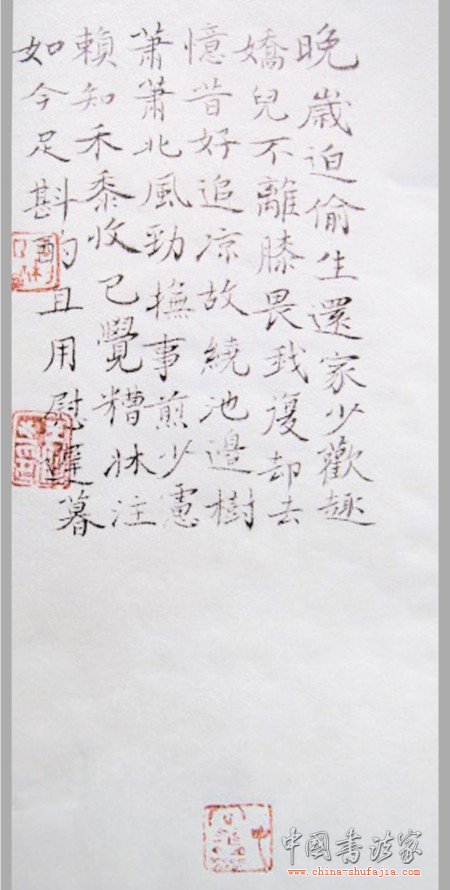 晚歲迫偷生還家少歡趣
嬌兒不離膝畏我復却去
憶昔好追凉故繞池邊樹
蕭蕭北風勁撫事煎少憲
賴知禾黍收已覺糟牀注
如今足斟酌且用慰遲暮
中國書法家
www.china-shufajia.com